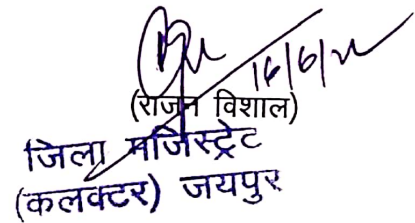 16/6/22
(राजन विशाल)
जिला मजिस्ट्रेट
(कलक्टर) जयपुर